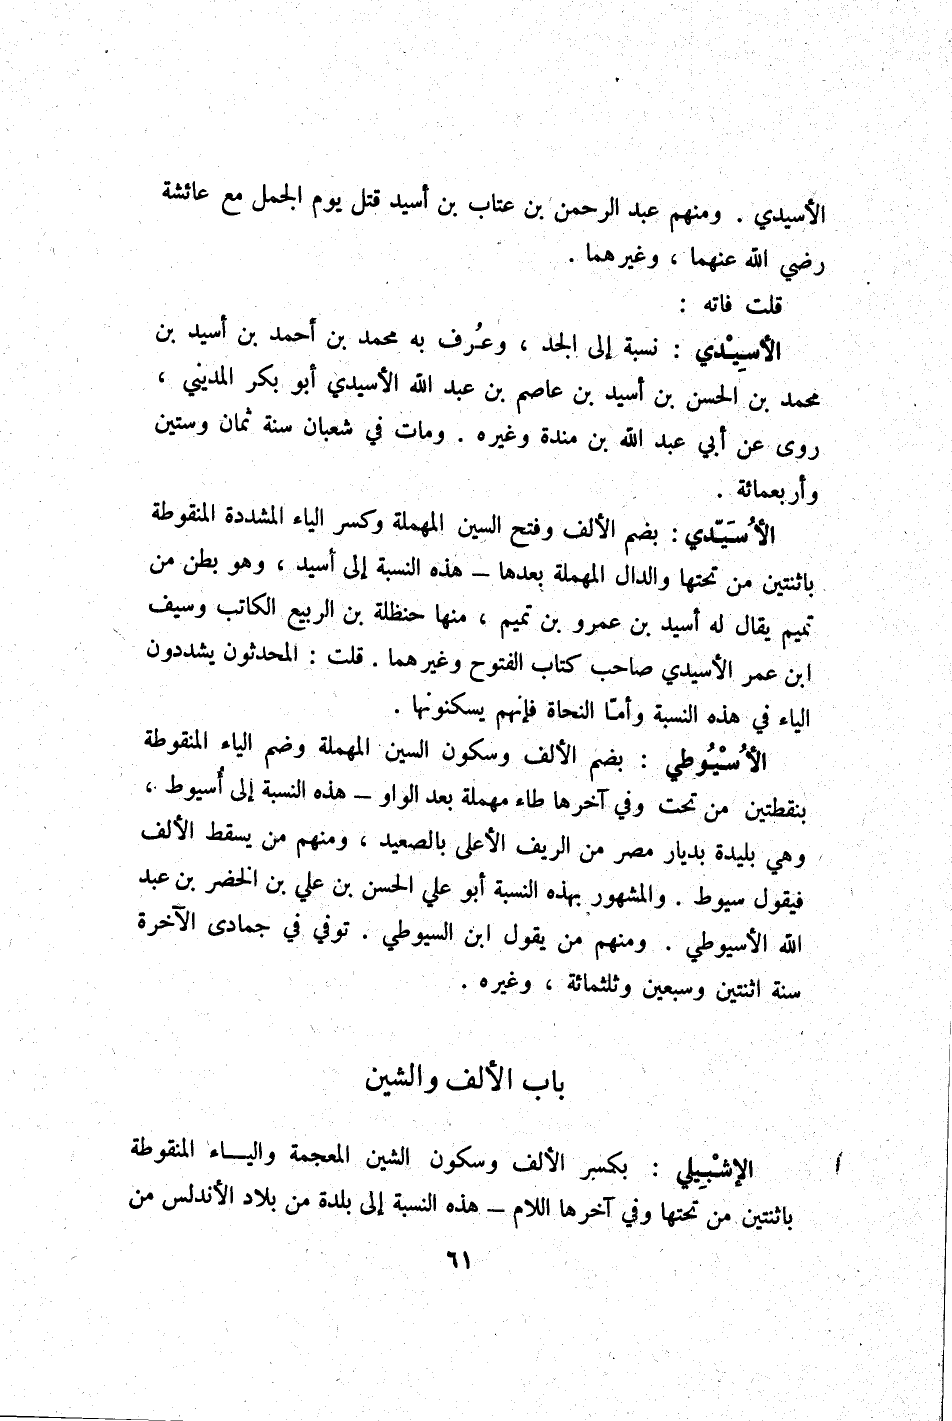 الأسيدي . ومنهم عبد الرحمن بن عتاب بن أسيد قتل يوم الجمل مع عائشة
رضي الله عنهما ، وغيرهما .
قلت فاته :
الأسِيْدي : نسبة إلى الجد ، وعُرف به محمد بن أحمد بن أسيد بن
محمد بن الحسن بن أسيد بن عاصم بن عبد الله الأسيدي أبو بكر المديني ،
روى عن أبي عبد الله بن مندة وغيره . ومات في شعبان سنة ثمان وستين
وأربعمائة .
الأُسَيّدي : بضم الألف وفتح السين المهملة وكسر الياء المشددة المنقوطة
باثنتين من تحتها والدال المهملة بعدها – هذه النسبة إلى أسيد ، وهو بطن من
تميم يقال له أسيد بن عمرو بن تميم ، منها حنظلة بن الربيع الكاتب وسيف
ابن عمر الأسيدي صاحب كتاب الفتوح وغيرهما . قلت : المحدثون يشددون
الياء في هذه النسبة وأمّا النحاة فإنهم يسكنونها .
الأُسْيُوطي : بضم الألف وسكون السين المهملة وضم الياء المنقوطة
بنقطتين من تحت وفي آخرها طاء مهملة بعد الواو – هذه النسبة إلى أُسيوط ،
وهي بليدة بديار مصر من الريف الأعلى بالصعيد ، ومنهم من يسقط الألف
فيقول سيوط . والمشهور بهذه النسبة أبو علي الحسن بن علي بن الخضر بن عبد
الله الأسيوطي . ومنهم من يقول ابن السيوطي . توفي في جمادى الآخرة
سنة اثنتين وسبعين وثلثمائة ، وغيره .
باب الألف والشين
الإشْبِيلي : بكسر الألف وسكون الشين المعجمة واليـــاء المنقوطة
باثنتين من تحتها وفي آخرها اللام – هذه النسبة إلى بلدة من بلاد الأندلس من
٦١